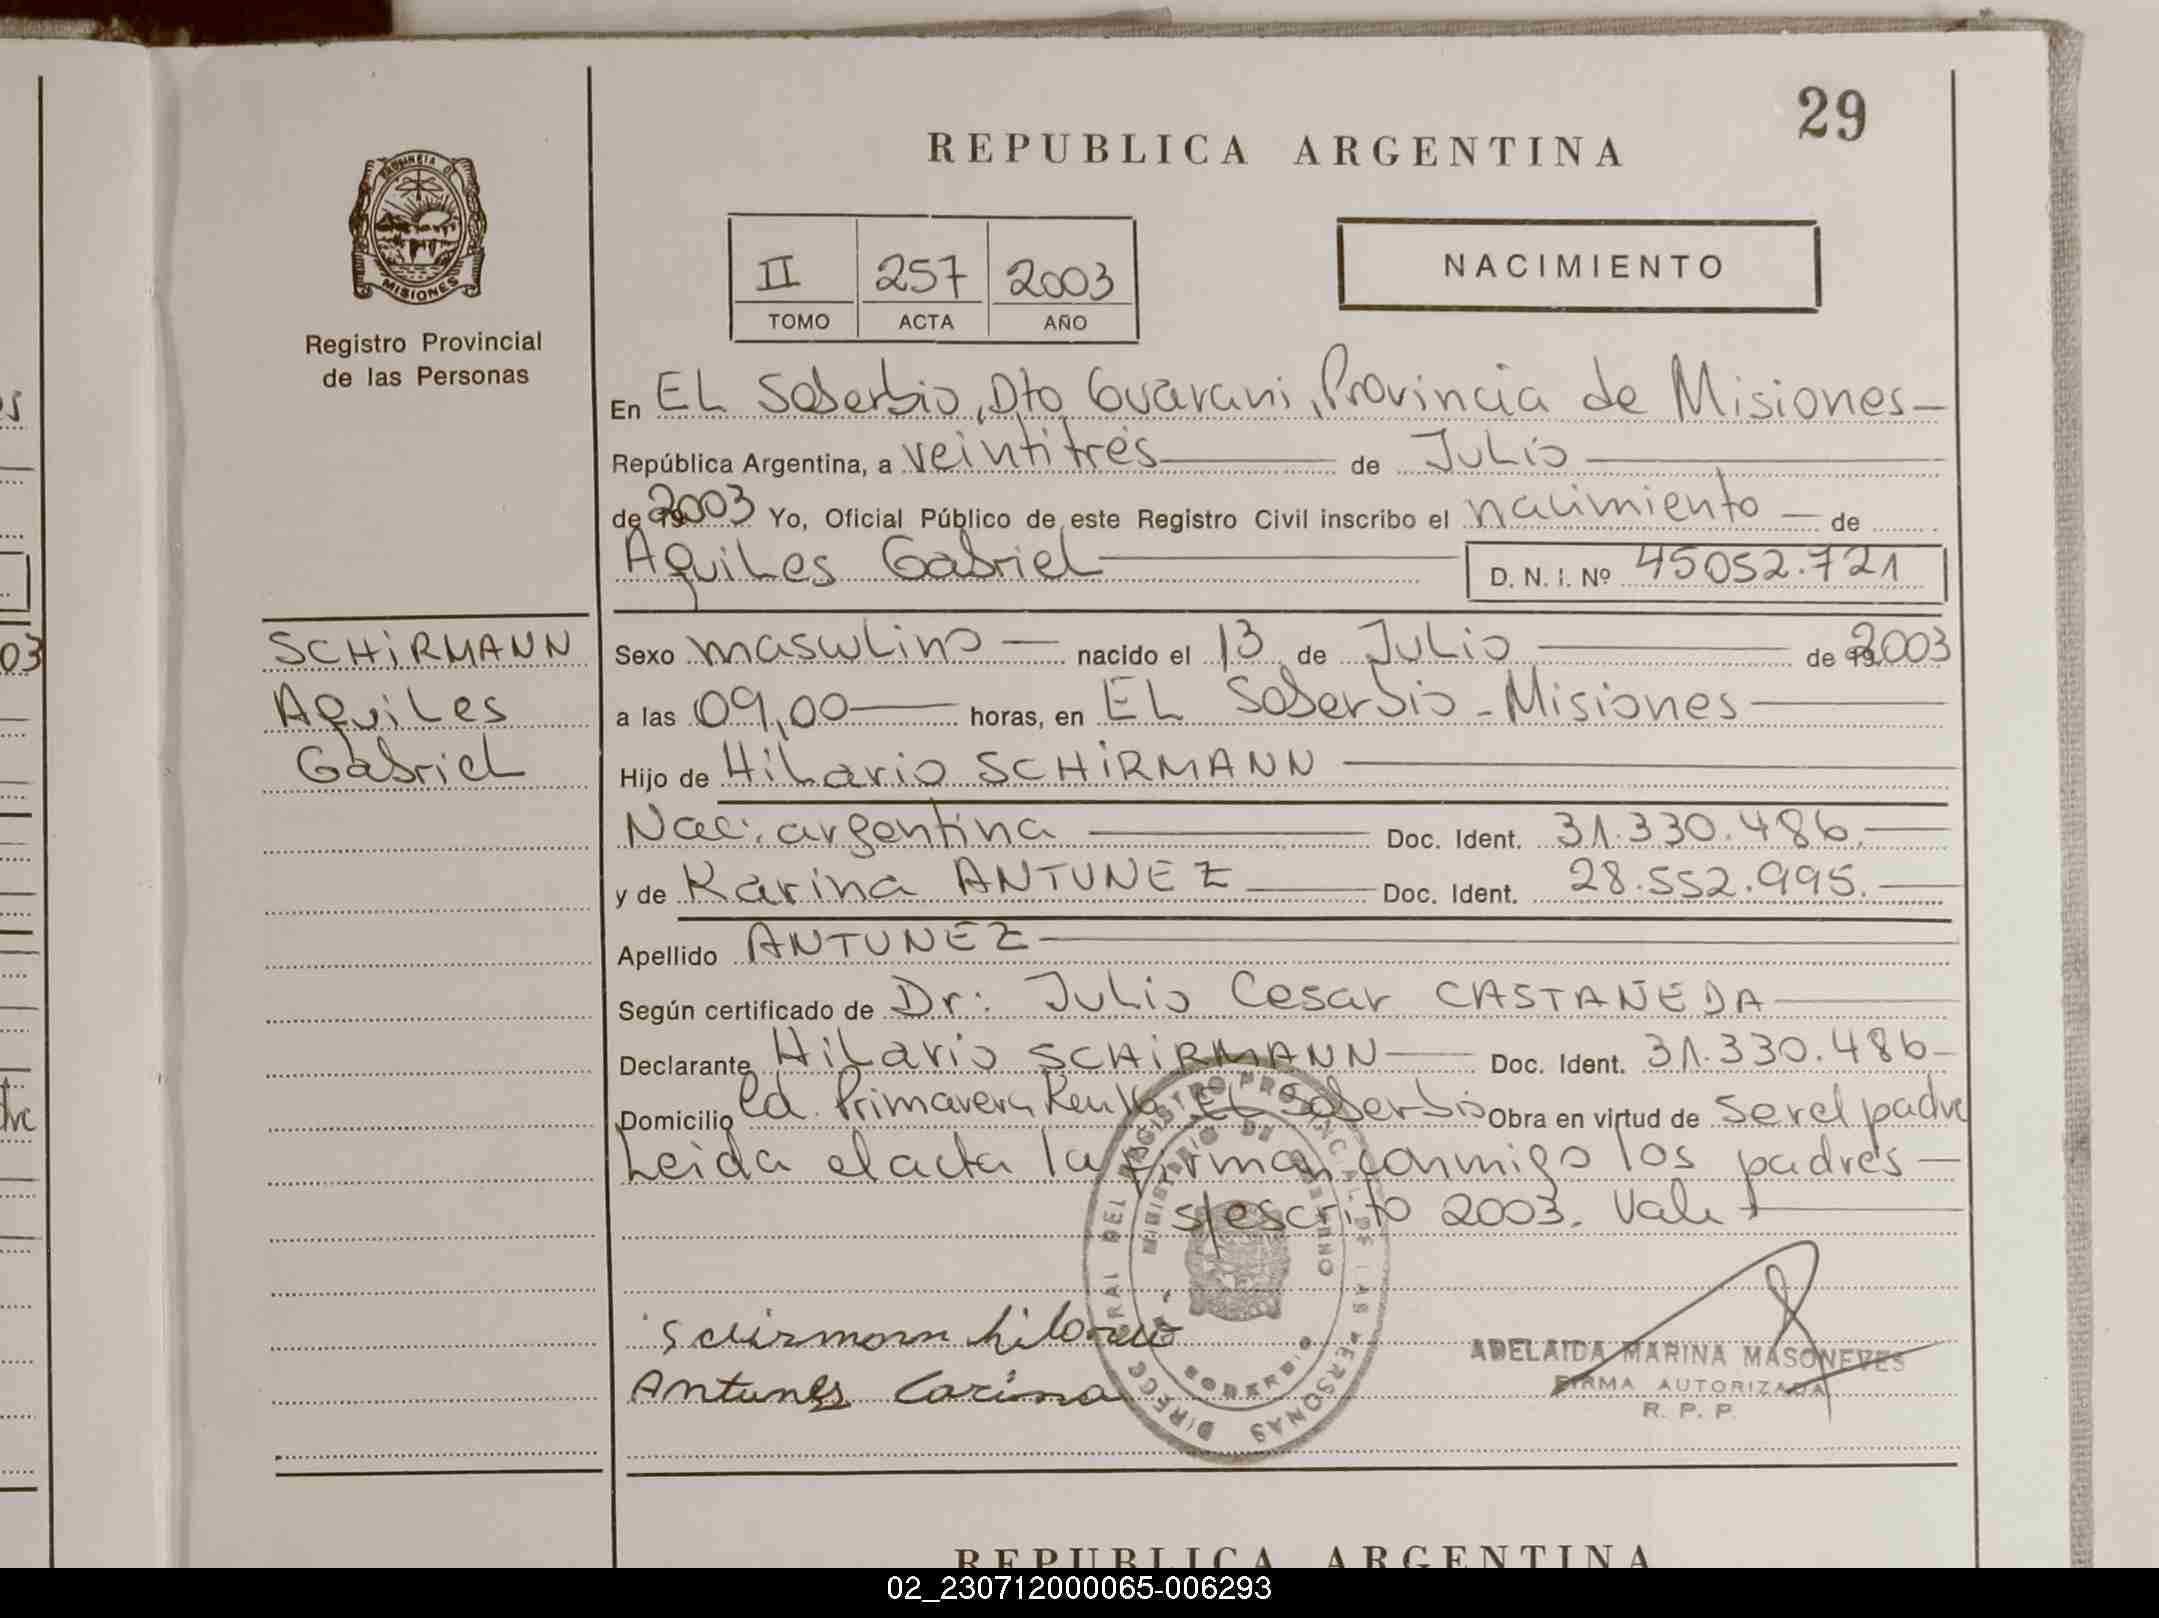 29
REPUBLICA ARGENTINA
PROVINCIA DE
MISIONES
Registro Provincial
de las Personas
II 257 2003
TOMO ACTA AÑO
NACIMIENTO
En EL Soberbio, Dto Guarani, Provincia de Misiones
República Argentina, a veintitrés de Julio
de 2003 Yo, Oficial Público de este Registro Civil inscribo el nacimiento de
Aquiles Gabriel D. N. I. Nº 45052.721
SCHiRMANN
Aquiles
Gabriel
Sexo masculino nacido el 13 de Julio de 2003
a las 09,00 horas, en EL Soberbio - Misiones
Hijo de Hilario SCHiRMANN
Nac: argentina Doc. Ident. 31.330.486.
y de Karina ANTUNEZ Doc. Ident. 28.552.995.
Apellido ANTUNEZ
Según certificado de Dr: Julio Cesar CASTAÑEDA
Declarante Hilario SCHiRMANN Doc. Ident. 31.330.486
Domicilio Primavera EL Soberbio Obra en virtud de ser el padre
Leida el acta la firman conmigo los padres
s/escrito 2003. Vale
Schirmann hilario
Antunes Carina
DIRECC GRAL DEL REGISTRO PROVINCIAL DE LAS PERSONAS
MINISTERIO DE GOBIERNO
SOBERBIO
ADELAIDA MARINA MASONEVES
FIRMA AUTORIZADA
R. P. P.
REPUBLICA ARGENTINA
02_230712000065-006293